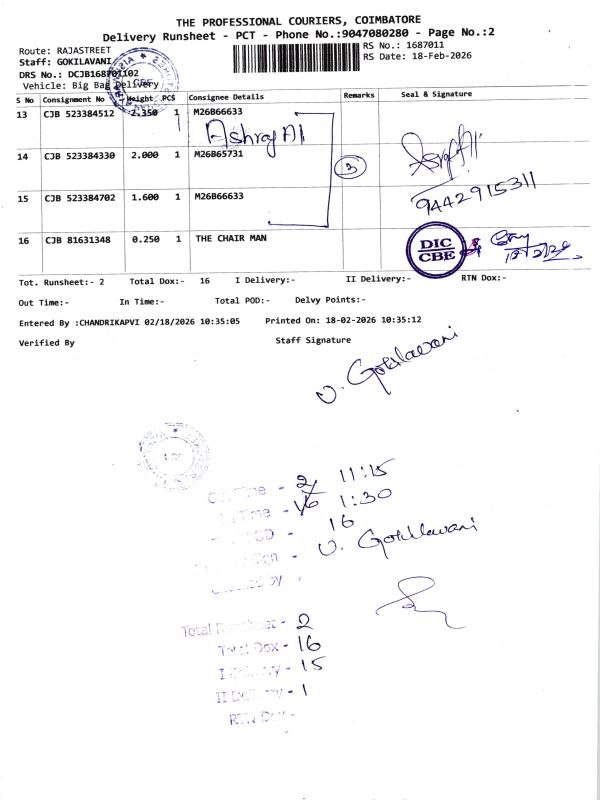 THE PROFESSIONAL COURIERS, COIMBATORE
Delivery Runsheet - PCT - Phone No.:9047080280 - Page No.:2
Route: RAJASTREET
RS No.: 1687011
Staff: GOKILAVANI
RS Date: 18-Feb-2026
DRS No.: DCJB168701102
Vehicle: Big Bag Delivery
S No Consignment No Weight PCS Consignee Details Remarks Seal & Signature
13 CJB 523384512 2.350 1 M26B66633
Ashraf Al
14 CJB 523384330 2.000 1 M26B65731
3
15 CJB 523384702 1.600 1 M26B66633
9442915311
16 CJB 81631348 0.250 1 THE CHAIR MAN
DIC
CBE
Tot. Runsheet:- 2 Total Dox:- 16 I Delivery:- II Delivery:- RTN Dox:-
Out Time:- In Time:- Total POD:- Delvy Points:-
Entered By :CHANDRIKAPVI 02/18/2026 10:35:05 Printed On: 18-02-2026 10:35:12
Verified By Staff Signature
V. Gokilavani
Time - 11:15
Time - 1:30
16
Sign - V. Gokilavani
by -
Total Runsheet - 2
Total Dox - 16
I Delivery - 15
II Delivery - 1
RTN Dox -